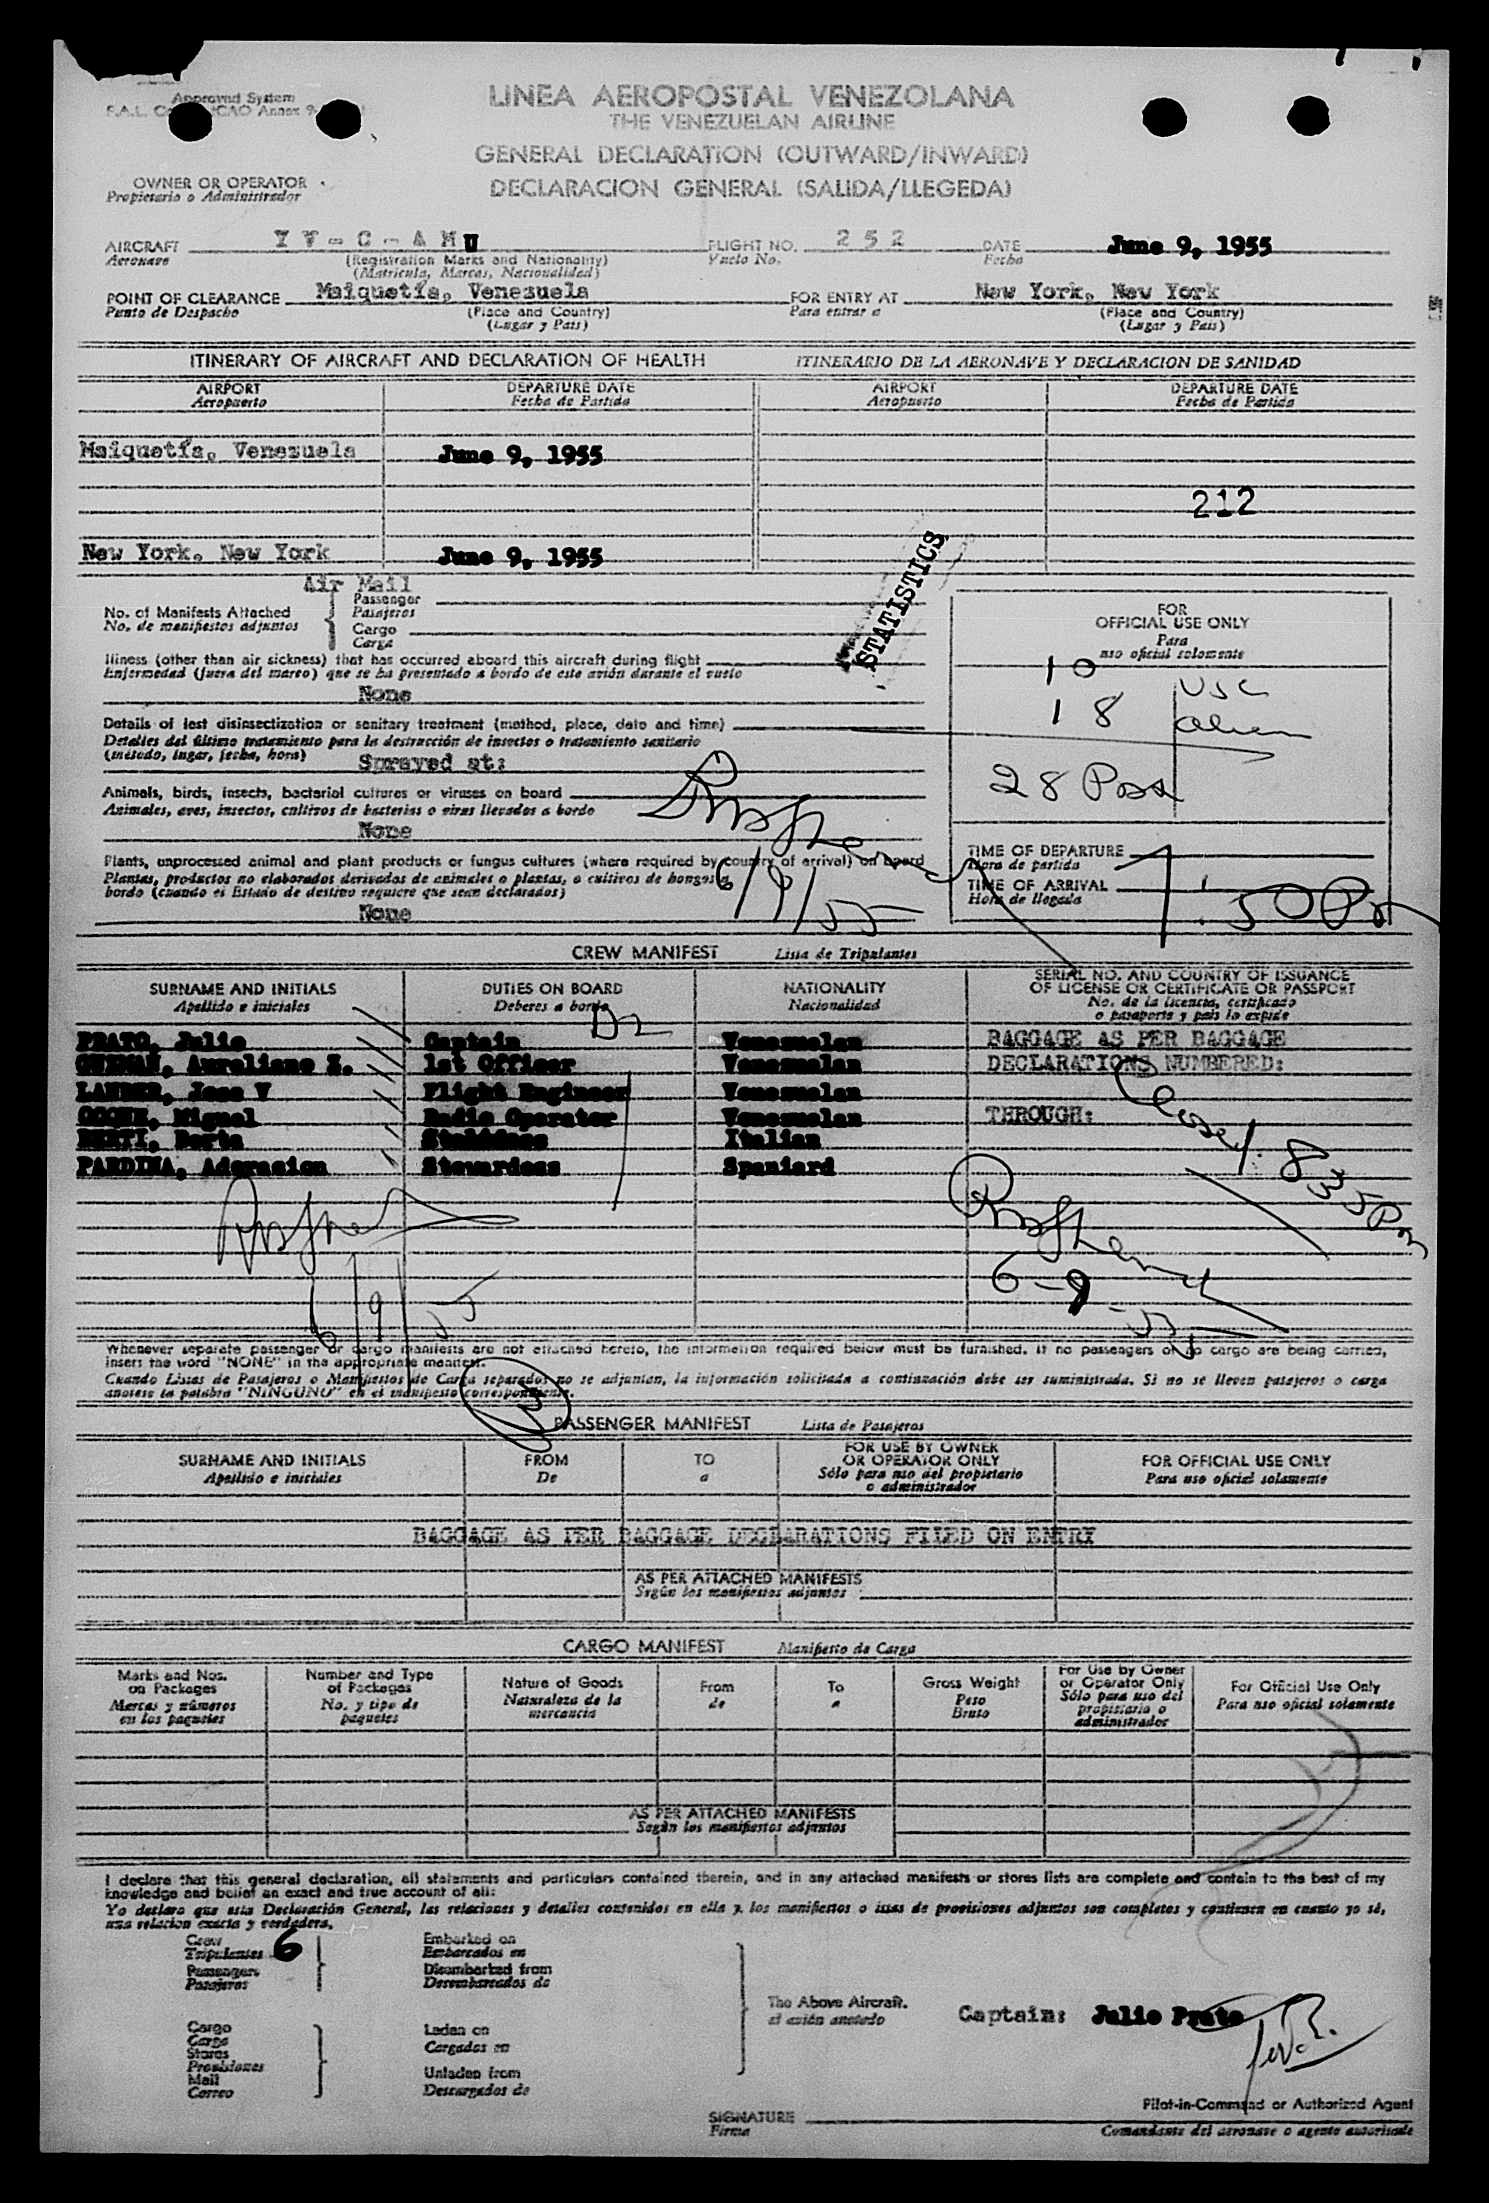 Approved System
LINEA AEROPOSTAL VENEZOLANA
THE VENEZUELAN AIRLINE
GENERAL DECLARATION (OUTWARD/INWARD)
DECLARACION GENERAL (SALIDA/LLEGEDA)
OWNER OR OPERATOR
Propietario o Administrador
AIRCRAFT YV-C-AMU FLIGHT NO. 252 DATE June 9, 1955
Aeronave (Registration Marks and Nationality) Vuelo No. Fecha
(Matricula, Marcas, Nacionalidad)
POINT OF CLEARANCE Maiquetía, Venezuela FOR ENTRY AT New York, New York
Punto de Despacho (Place and Country) Para entrar a (Place and Country)
(Lugar y Pais) (Lugar y Pais)
ITINERARY OF AIRCRAFT AND DECLARATION OF HEALTH ITINERARIO DE LA AERONAVE Y DECLARACION DE SANIDAD
AIRPORT DEPARTURE DATE AIRPORT DEPARTURE DATE
Aeropuerto Fecha de Partida Aeropuerto Fecha de Partida
Maiquetía, Venezuela June 9, 1955
212
New York, New York June 9, 1955
Air Mail
STATISTICS
No. of Manifests Attached Passenger
No. de manifiestos adjuntos Pasajeros
Cargo
Carga
FOR
OFFICIAL USE ONLY
Para
uso oficial solamente
10 USC
18 alien
28 Pass
Illness (other than air sickness) that has occurred aboard this aircraft during flight
Enfermedad (fuera del mareo) que se ha presentado a bordo de este avión durante el vuelo
None
Details of last disinsectization or sanitary treatment (method, place, date and time)
Detalles del último tratamiento para la destrucción de insectos o tratamiento sanitario
(método, lugar, fecha, hora)
Sprayed at:
Animals, birds, insects, bacterial cultures or viruses on board
Animales, aves, insectos, cultivos de bacterias o virus llevados a bordo
None
Plants, unprocessed animal and plant products or fungus cultures (where required by country of arrival) on board
Plantas, productos no elaborados derivados de animales o plantas, o cultivos de hongos a
bordo (cuando el Estado de destino requiere que sean declarados)
None
6/9/55
TIME OF DEPARTURE
Hora de partida
TIME OF ARRIVAL 7:50 Pm
Hora de llegada
CREW MANIFEST Lista de Tripulantes
SURNAME AND INITIALS DUTIES ON BOARD NATIONALITY SERIAL NO. AND COUNTRY OF ISSUANCE
OF LICENSE OR CERTIFICATE OR PASSPORT
Apellido e iniciales Deberes a bordo Nacionalidad No. de la licencia, certificado
o pasaporte y pais lo expide
PRATO, Julio Captain Venezuelan BAGGAGE AS PER BAGGAGE
GUZMAN, Aureliano Z. 1st Officer Venezuelan DECLARATIONS NUMBERED:
LANDER, Jose V Flight Engineer Venezuelan
Miguel Radio Operator Venezuelan THROUGH:
BERTI, Berta Italian
PARDINA, Adoracion Stewardess Spaniard
8 35 Pm
6/9/55
6-9-55
Whenever separate passenger or cargo manifests are not attached hereto, the information required below must be furnished. If no passengers or no cargo are being carried,
insert the word "NONE" in the appropriate manifest.
Cuando Listas de Pasajeros o Manifiestos de Carga separados no se adjuntan, la información solicitada a continuación debe ser suministrada. Si no se lleven pasajeros o carga
anotese la palabra "NINGUNO" en el manifiesto correspondiente.
PASSENGER MANIFEST Lista de Pasajeros
SURNAME AND INITIALS FROM TO FOR USE BY OWNER
OR OPERATOR ONLY FOR OFFICIAL USE ONLY
Apellido e iniciales De a Sólo para uso del propietario
o administrador Para uso oficial solamente
BAGGAGE AS PER BAGGAGE DECLARATIONS FILED ON ENTRY
AS PER ATTACHED MANIFESTS
Según los manifiestos adjuntos
CARGO MANIFEST Manifiesto de Carga
Marks and Nos.
on Packages Number and Type
of Packages Nature of Goods From To Gross Weight For Use by Owner
or Operator Only For Official Use Only
Marcas y números
en los paquetes No. y tipo de
paquetes Naturaleza de la
mercancia de a Peso
Bruto Sólo para uso del
propietario o
administrador Para uso oficial solamente
AS PER ATTACHED MANIFESTS
Según los manifiestos adjuntos
I declare that this general declaration, all statements and particulars contained therein, and in any attached manifests or stores lists are complete and contain to the best of my
knowledge and belief an exact and true account of all:
Yo declaro que esta Declaración General, las relaciones y detalles contenidos en ella y los manifiestos o listas de provisiones adjuntos son completos y contienen en cuanto yo sé,
una relacion exacta y verdadera.
Crew 6 Embarked on
Tripulantes Embarcados en
Passengers Disembarked from
Pasajeros Desembarcados de
The Above Aircraft. Captain: Julio Prato
el avión anotado
Cargo Laden on
Carga Cargados en
Stores
Provisiones
Mail Unladen from
Correo Descargados de
Pilot-in-Command or Authorized Agent
SIGNATURE
Firma Comandante del aeronave o agente autorizado